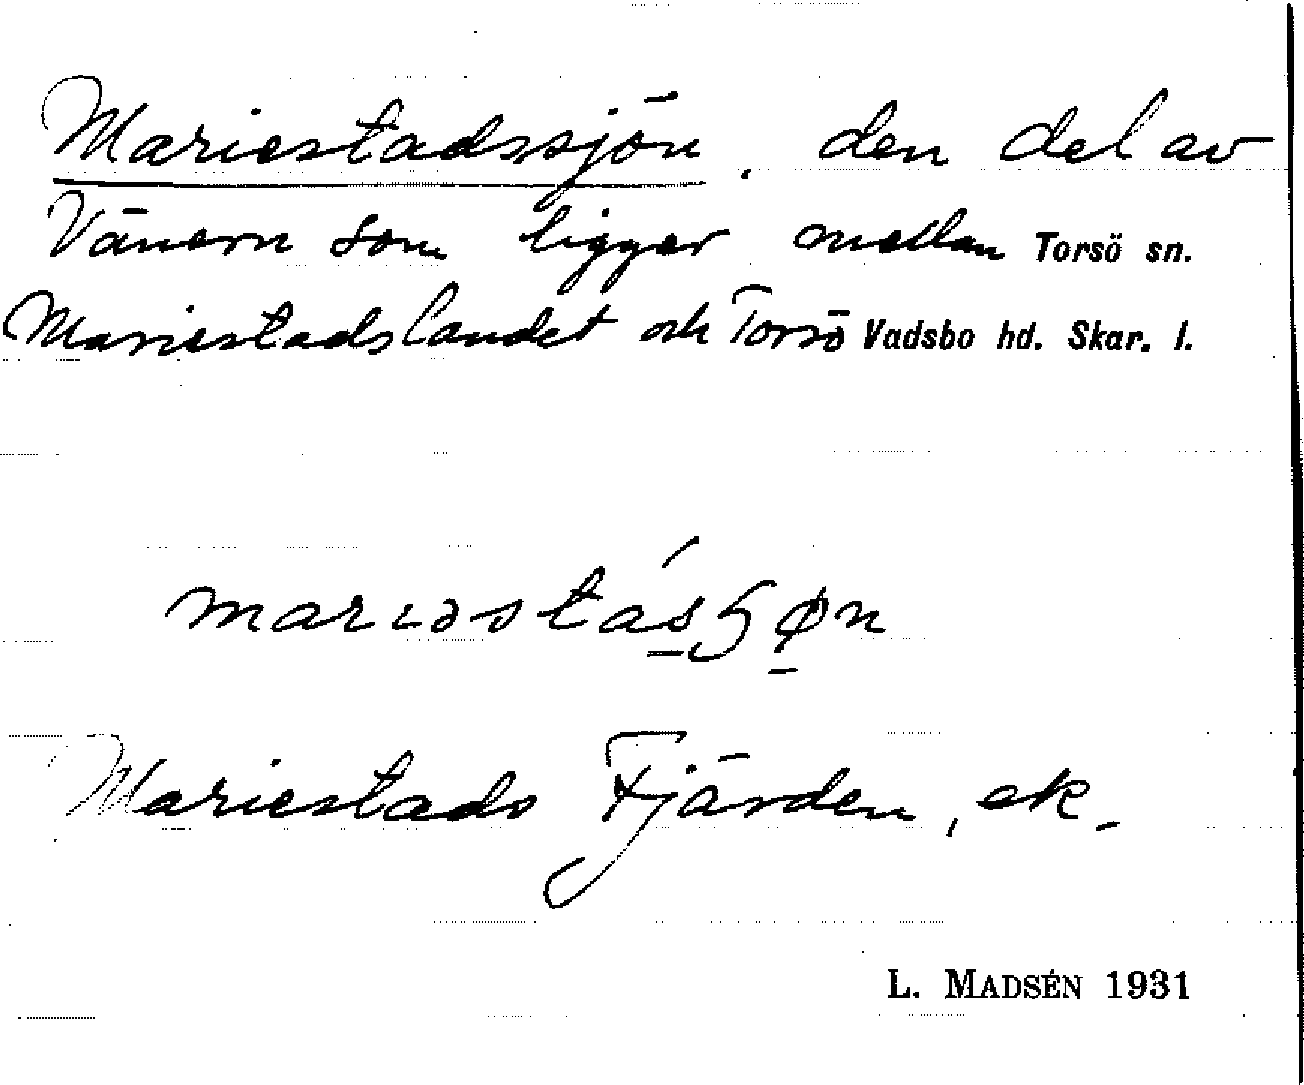 Mariestadssjön, den del av
Vänern som ligger mellan Torsö sn.
Mariestadslandet och Torsö Vadsbo hd. Skar. l.
marıəstásɧøn
Mariestads Fjärden, ek.
L. MADSÉN 1931